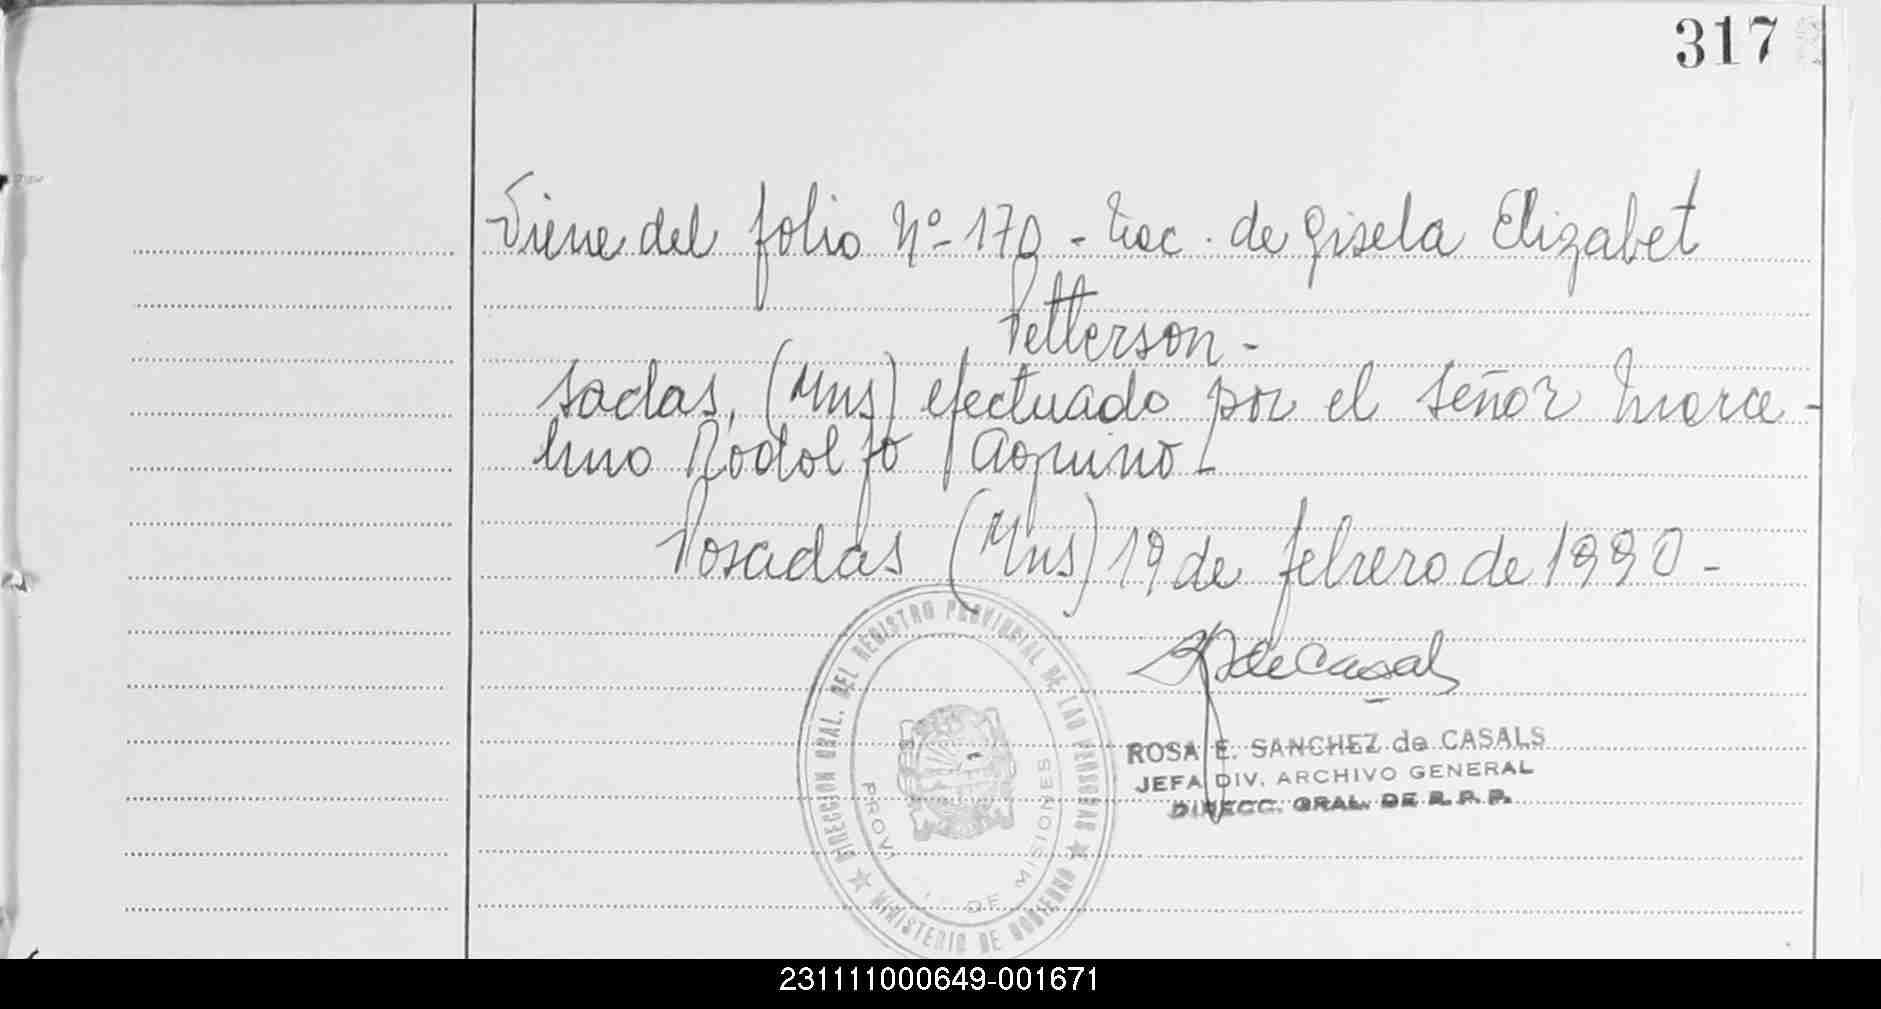 317
Viene del folio Nº 170 - Rec. de Gisela Elizabet
Petterson -
sadas, (Mns) efectuado por el señor Marce-
lino Rodolfo Aquino -
Posadas (Mns) 19 de febrero de 1990 -
DIRECCION GRAL. DEL REGISTRO PROVINCIAL DE LAS PERSONAS ★ MINISTERIO DE GOBIERNO ★
DE MISIONES
ROSA E. SANCHEZ de CASALS
JEFA DIV. ARCHIVO GENERAL
DIRECC. GRAL. DE R. P. P.
231111000649-001671